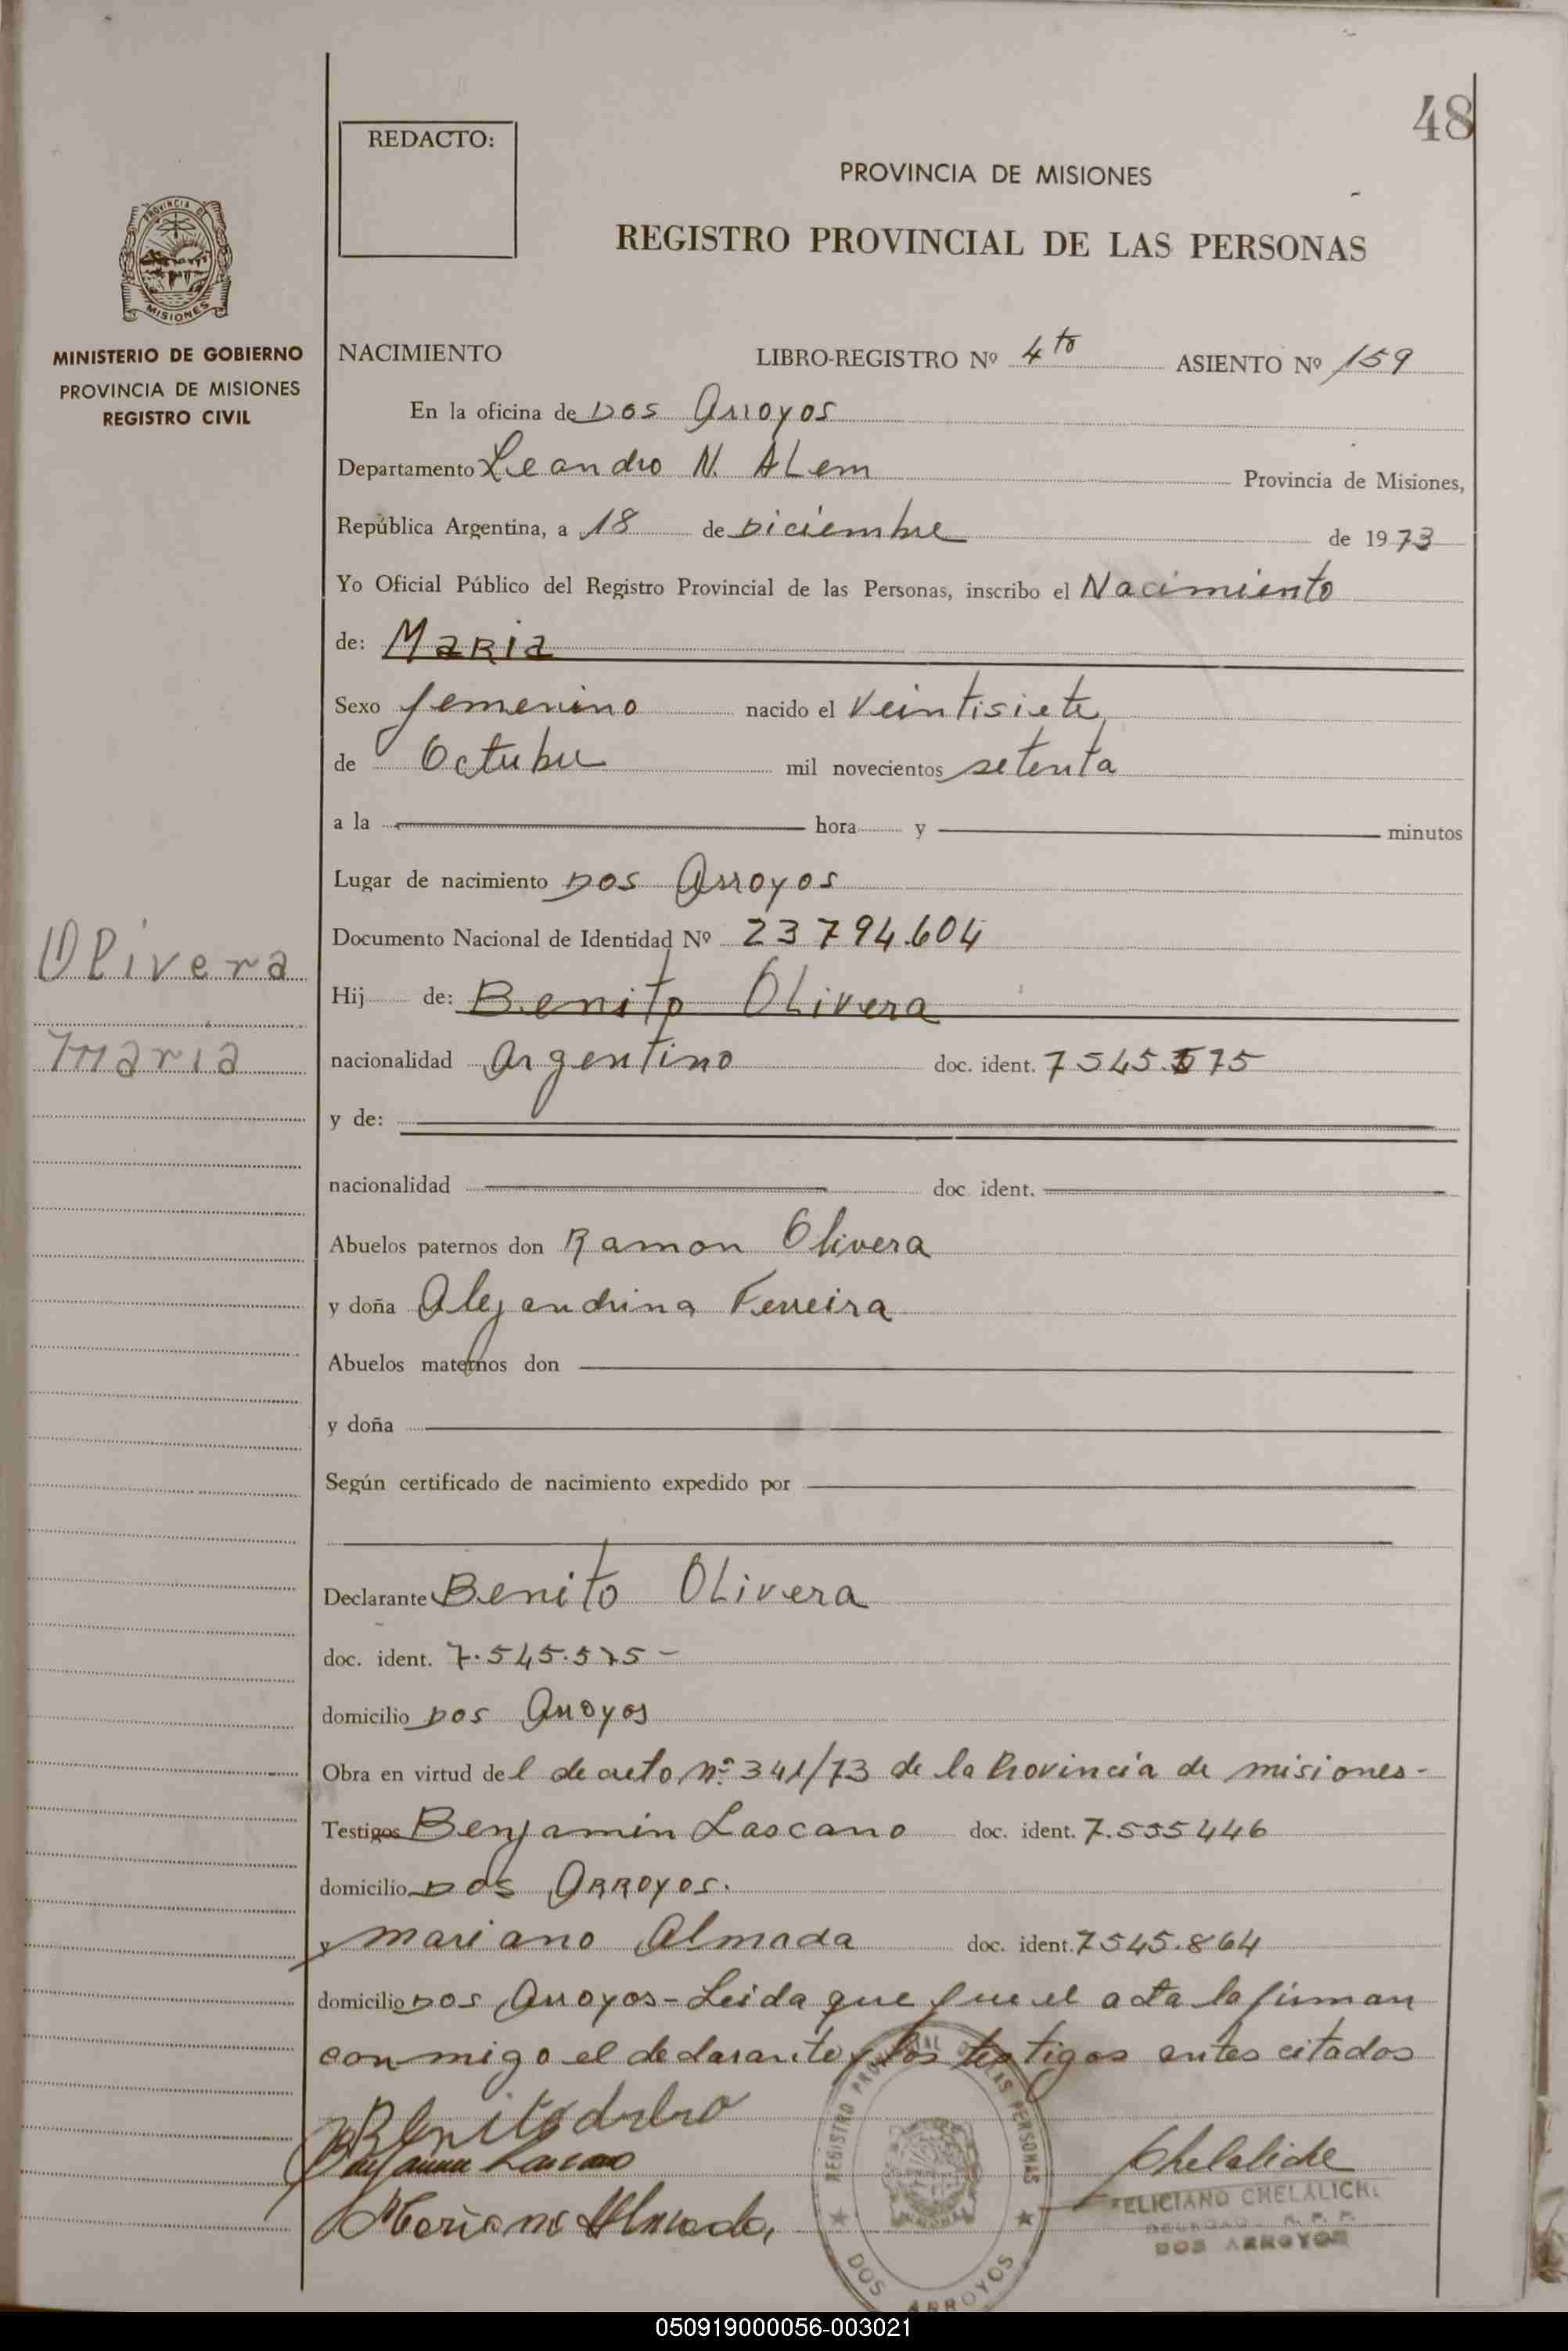 48
REDACTO:
PROVINCIA DE MISIONES
REGISTRO PROVINCIAL DE LAS PERSONAS
PROVINCIA DE
MISIONES
MINISTERIO DE GOBIERNO
PROVINCIA DE MISIONES
REGISTRO CIVIL
NACIMIENTO LIBRO-REGISTRO Nº 4to ASIENTO Nº 159
En la oficina de DOS Arroyos
Departamento Leandro N. ALem Provincia de Misiones,
República Argentina, a 18 de Diciembre de 1973
Yo Oficial Público del Registro Provincial de las Personas, inscribo el Nacimiento
de: MaRia
Sexo femenino nacido el Veintisiete
de Octubre mil novecientos setenta
a la hora y minutos
Lugar de nacimiento DOS Arroyos
Documento Nacional de Identidad Nº 23794.604
Olivera
Maria
Hij de: Benito OLivera
nacionalidad Argentino doc. ident. 7545.575
y de:
nacionalidad doc. ident.
Abuelos paternos don Ramon Olivera
y doña Alejandrina Ferreira
Abuelos maternos don
y doña
Según certificado de nacimiento expedido por
Declarante Benito OLivera
doc. ident. 7.545.575 -
domicilio DOS Arroyos
Obra en virtud del decreto nº 341/73 de la Provincia de misiones-
Testigos Benjamin Lascano doc. ident. 7.555446
domicilio DOS ARROyos.
y mariano Almada doc. ident. 7545.864
domicilio DOS Arroyos - Leida que fue el acta la firman
conmigo el declarante y los testigos antes citados
Mariano Almada
Chelaliche
FELICIANO CHELALICHE
DOS ARROYOS
REGISTRO PROVINCIAL DE LAS PERSONAS
DOS ARROYOS
050919000056-003021